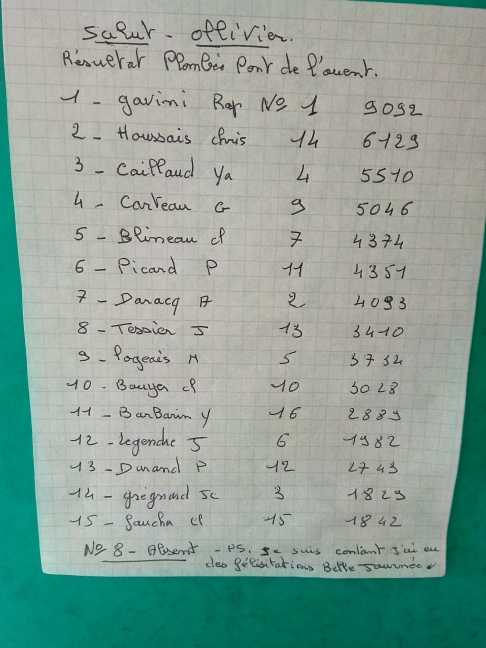 Salut - Ollivier.
Résueltat Plombée Pont de l'ouent.
1 - gavini Rap Nº 1 9092
2 - Houssais chris 14 6129
3 - Caillaud Ya 4 5510
4 - Carteau G 9 5046
5 - Blineau cl 7 4374
6 - Picard P 11 4351
7 - Daracq A 2 4093
8 - Tessier J 13 3410
9 - Pogeais M 5 3734
10 - Bouyer cl 10 3028
11 - BarBarin y 16 2889
12 - Legendre J 6 1982
13 - Durand P 12 2743
14 - grégnard Jc 3 1829
15 - Gaucha cl 15 1842
Nº 8 - Absent - PS. Je suis contant J'ai eu
des félisitations Belle Journée